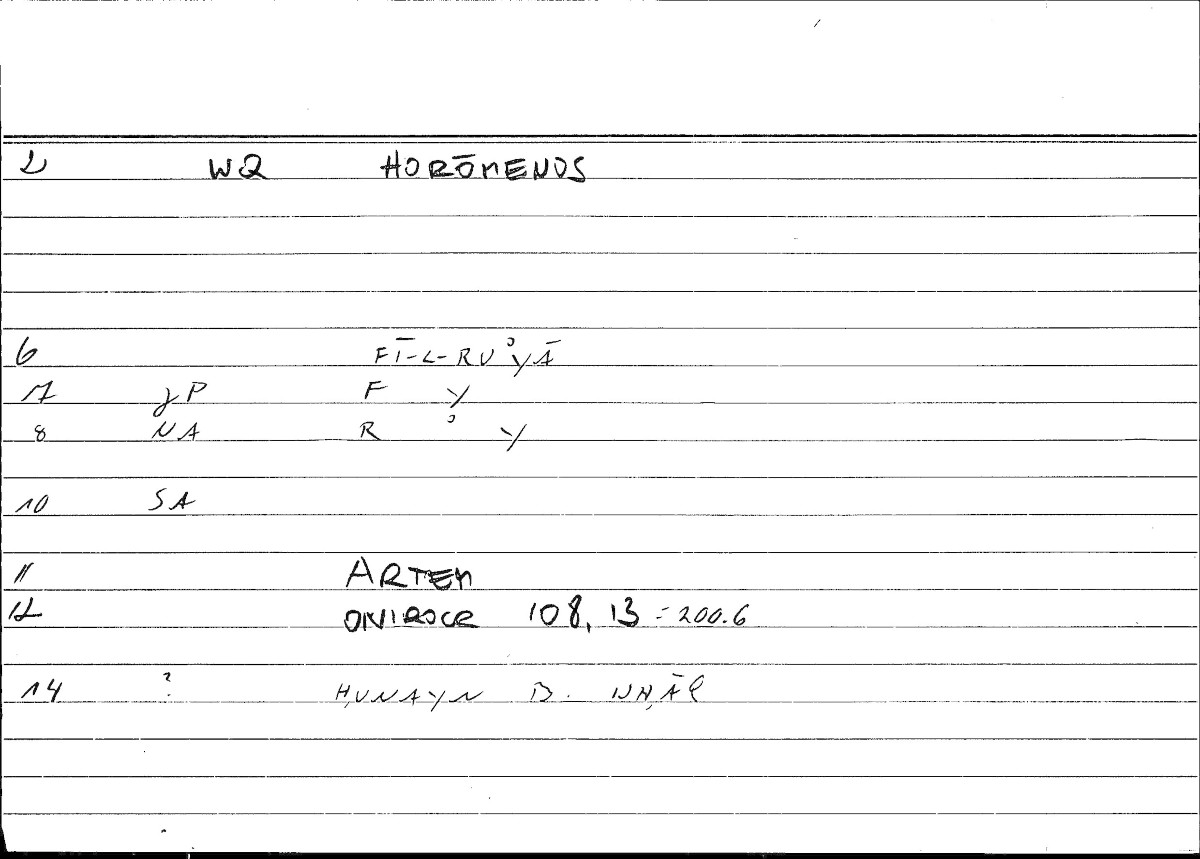 2 WQ HORŌMENOS
6 FĪ-L-RUʾYĀ
7 JP F Y
8 NA R ʾ Y
10 SA
11 ARTEM
12 ONIROCR 108, 13 = 200.6
14 ? ḤUNAYN B. ISḤĀQ